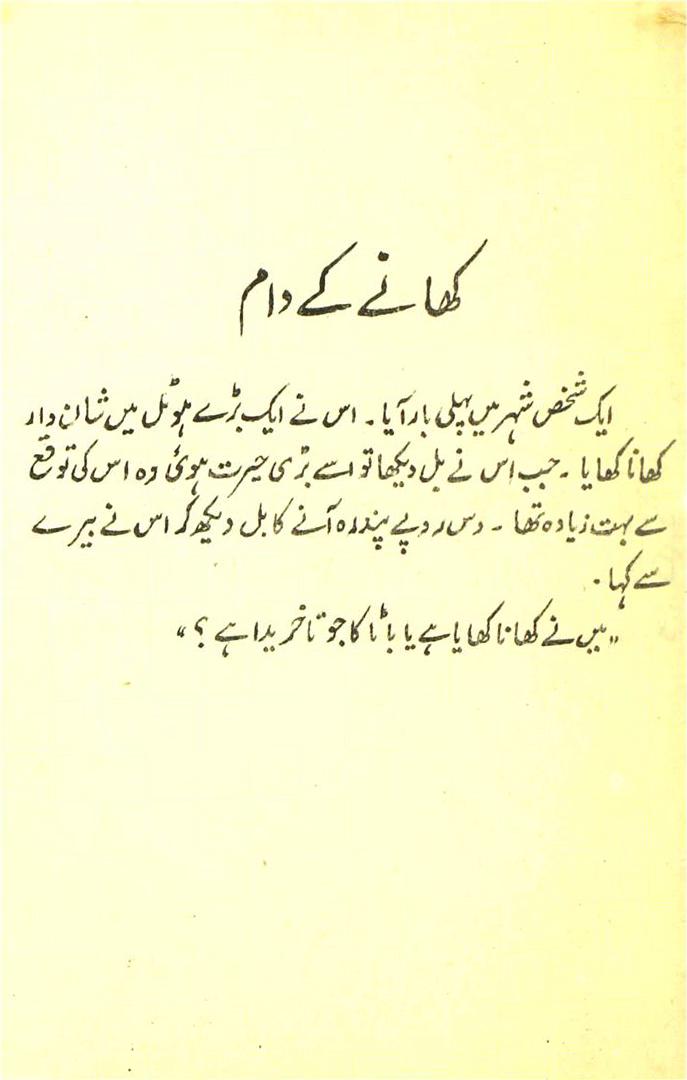 کھانے کے دام
ایک شخص شہر میں پہلی بار آیا۔ اس نے ایک بڑے ہوٹل میں شان دار
کھانا کھایا۔ جب اس نے بل دیکھا تو اسے بڑی حیرت ہوئی وہ اس کی توقع
سے بہت زیادہ تھا۔ دس روپے پندرہ آنے کا بل دیکھ کر اس نے بیرے
سے کہا۔
"میں نے کھانا کھایا ہے یا باٹا کا جوتا خریدا ہے؟"